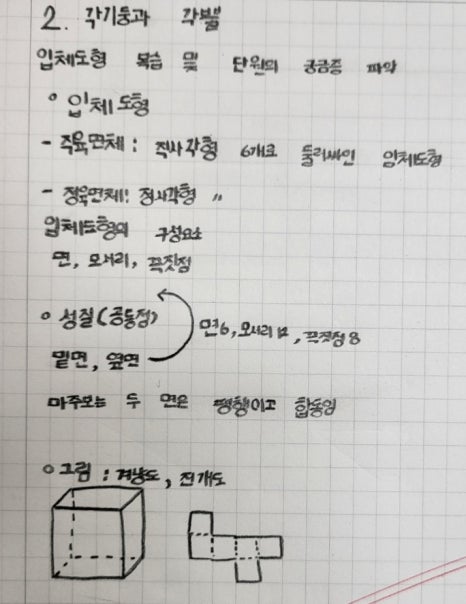 2. 각기둥과 각뿔
입체도형 복습 및 단원의 궁금증 파악
∘ 입체도형
- 직육면체 : 직사각형 6개로 둘러싸인 입체도형
- 정육면체 : 정사각형 〃
입체도형의 구성요소
면, 모서리, 꼭짓점
∘ 성질(공통점)
면6, 모서리12, 꼭짓점8
밑면, 옆면
마주보는 두 면은 평행이고 합동임
∘ 그림 : 겨냥도, 전개도